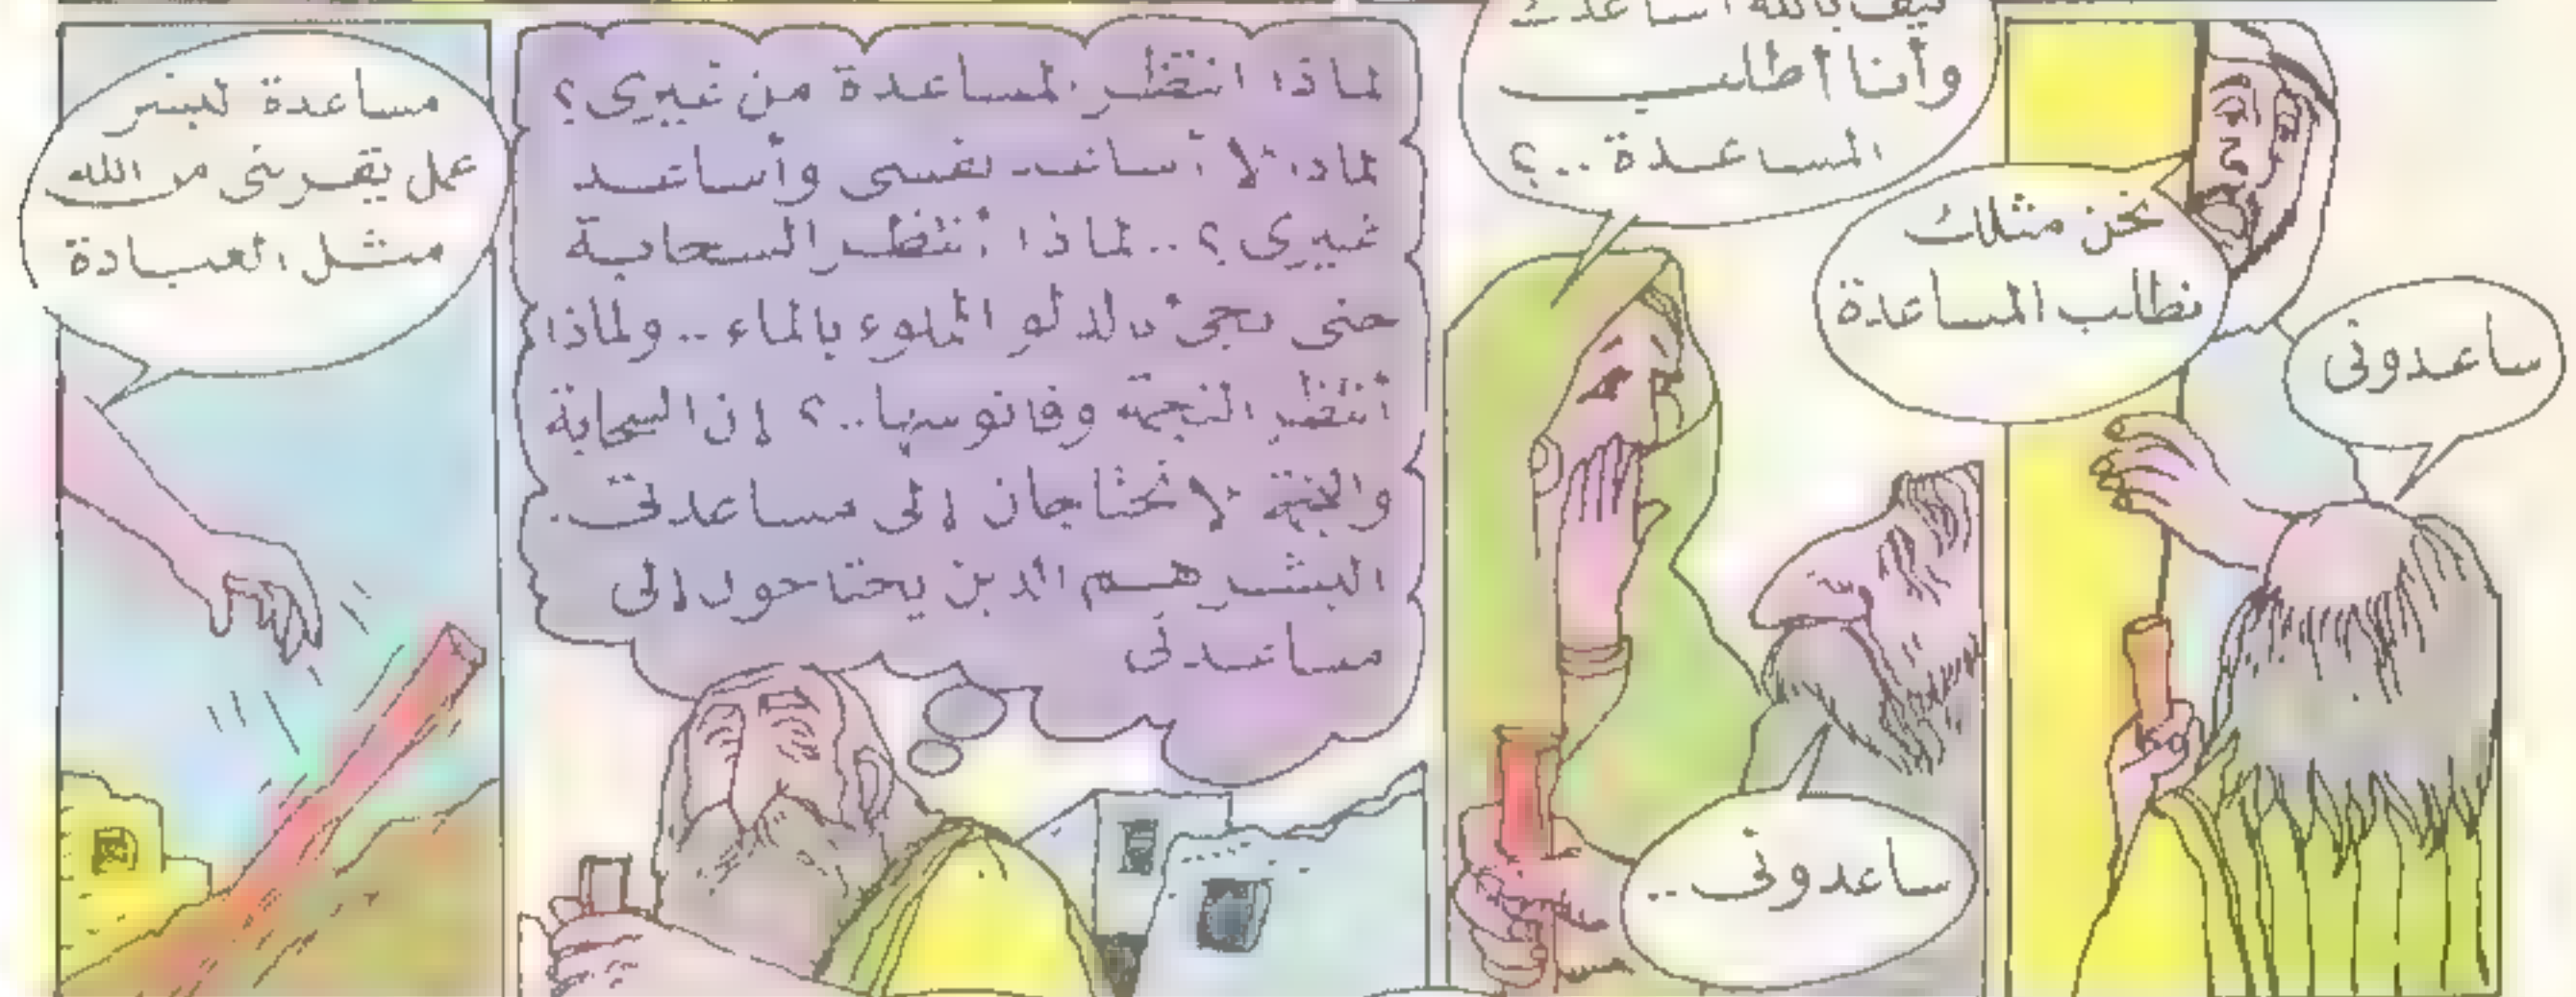 ساعدونى
نحن مثلك
نطلب المساعدة
كيف بالله أساعدك
وأنا أطلب
المساعدة..؟
ساعدونى..
لماذا انتظر المساعدة من غيرى؟
لماذا لا أساعد نفسى وأساعد
غيرى؟.. لماذا أنتظر السحابة
حتى تجئ بالدلو المملوء بالماء.. ولماذا
أنتظر النجمة وفانوسها..؟ إن السحابة
والنجمة لا تحتاجان إلى مساعدتى.
البشر هم الذين يحتاجون إلى
مساعدتى
مساعدة البشر
عمل يقربنى من الله
مثل العبادة